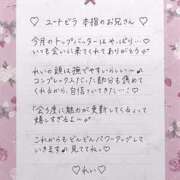 ♡ ユーナビラ 本指のお兄さん ♡
今月のトップバッターはやっぱり…♡
いつも会いに来てくれてありがとう
れいの顔は撫でやすいらしい…♪
コンプレックスだった部分も褒めて
くれるから、自信ついてきたー！♡
「会う度に魅力が更新してくるって
嬉しすぎるよ〜
これからもどんどんパワーアップして
いきます♪見ててね♡
♡ れい ♡